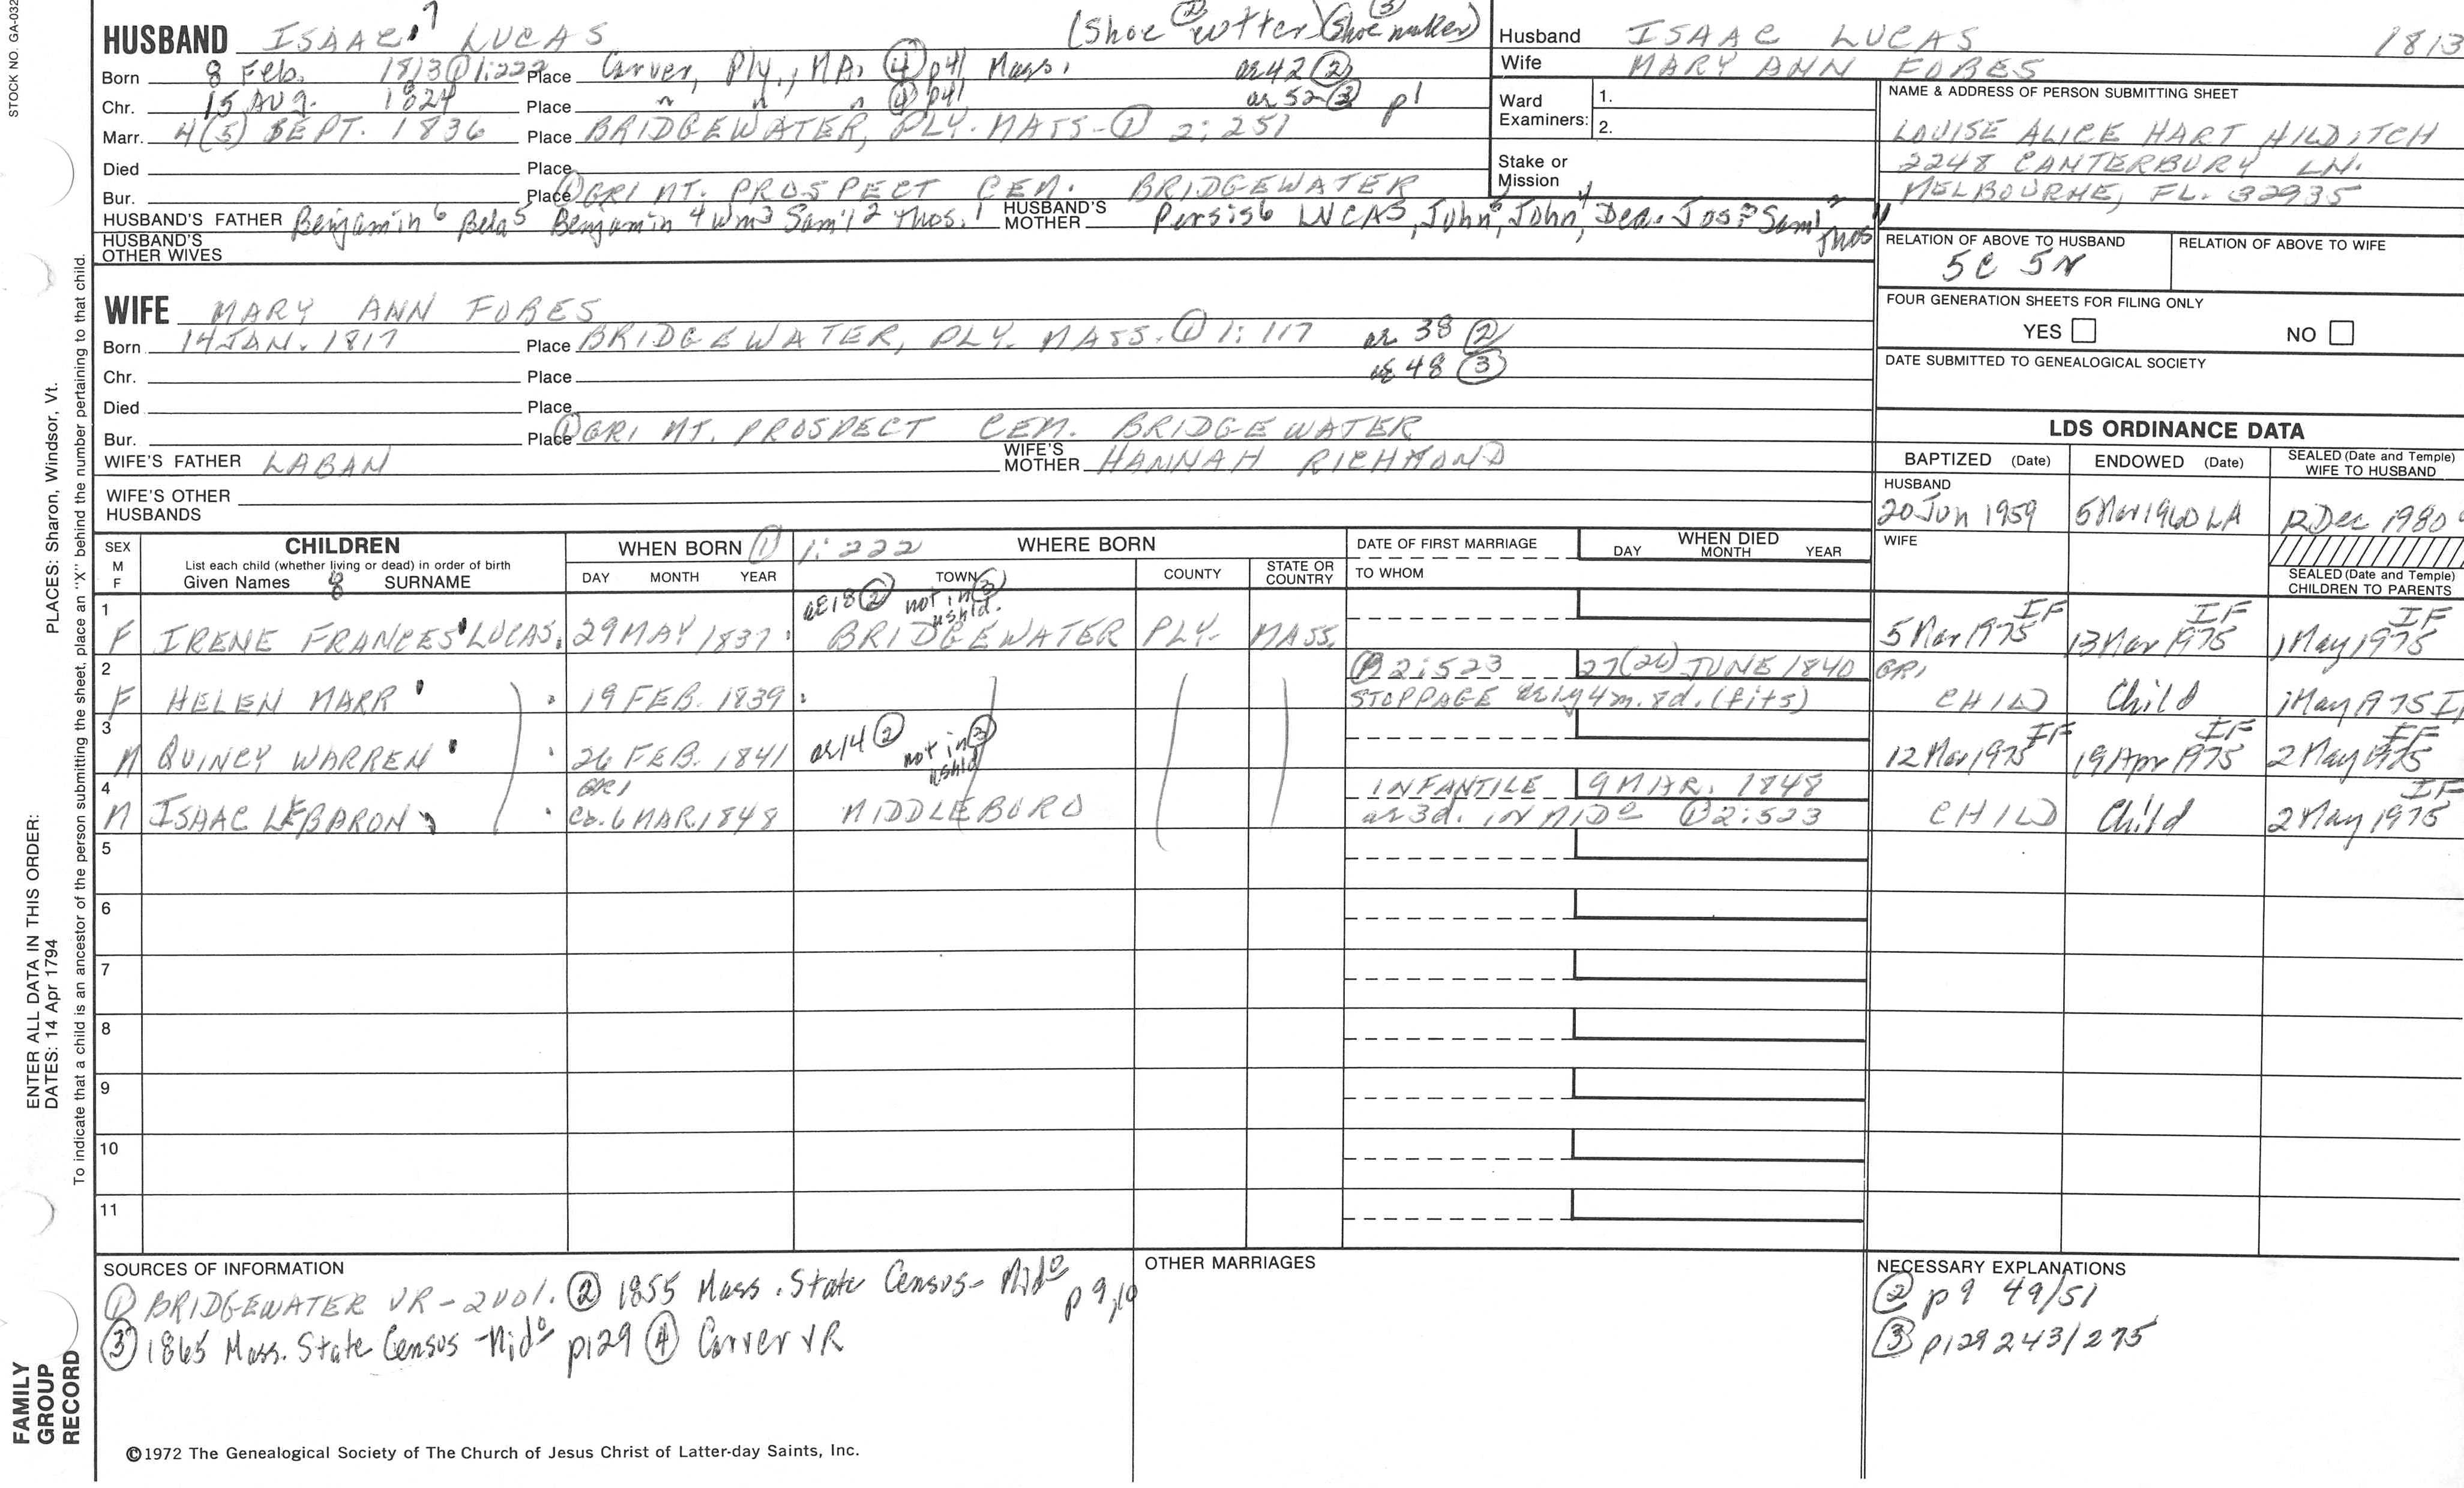 STOCK NO. GA-032
HUSBAND ISAAC 7 LUCAS (Shoe cutter) (Shoe maker) 2 3
Born 8 Feb. 1813 ① 1:222 Place Carver, Ply., MA. ④ p41 Mass. ae 42 ②
Chr. 15 AUG. 1824 Place " " " ④ p41 ae 52 ③ p1
Marr. 4(5) SEPT. 1836 Place BRIDGEWATER, PLY. MASS-① 2:251
Died Place
Bur. Place ① GR1 MT. PROSPECT CEM. BRIDGEWATER
HUSBAND'S FATHER Benjamin 6 Bela 5 Benjamin 4 Wm 3 Sam'l 2 Thos. 1 HUSBAND'S MOTHER Persis 6 LUCAS, John 5, John 4, Dea. Jos. 3 Saml 2 Thos 1
HUSBAND'S OTHER WIVES
Husband ISAAC LUCAS 1813
Wife MARY ANN FOBES
Ward Examiners: 1.
2.
Stake or Mission
NAME & ADDRESS OF PERSON SUBMITTING SHEET
LOUISE ALICE HART HILDITCH
2248 CANTERBURY LN.
MELBOURNE, FL. 32935
RELATION OF ABOVE TO HUSBAND RELATION OF ABOVE TO WIFE
5C 5R
FOUR GENERATION SHEETS FOR FILING ONLY
YES NO
DATE SUBMITTED TO GENEALOGICAL SOCIETY
WIFE MARY ANN FOBES
Born 14 JAN. 1817 Place BRIDGEWATER, PLY. MASS. ① 1:117 ae 38 ②
Chr. Place ae 48 ③
Died Place
Bur. Place ① GR1 MT. PROSPECT CEM. BRIDGEWATER
WIFE'S FATHER LABAN WIFE'S MOTHER HANNAH RICHMOND
WIFE'S OTHER HUSBANDS
LDS ORDINANCE DATA
BAPTIZED (Date) ENDOWED (Date) SEALED (Date and Temple) WIFE TO HUSBAND
HUSBAND
20 Jun 1959 5 Mar 1960 LA 12 Dec 1980
WIFE
SEALED (Date and Temple) CHILDREN TO PARENTS
SEX M F CHILDREN WHEN BORN ① 1:222 WHERE BORN DATE OF FIRST MARRIAGE WHEN DIED
List each child (whether living or dead) in order of birth
Given Names 8 SURNAME DAY MONTH YEAR TOWN COUNTY STATE OR COUNTRY TO WHOM DAY MONTH YEAR
1 ae 18 ② not in ③ hshld.
F IRENE FRANCES LUCAS. 29 MAY 1837 BRIDGEWATER PLY. MASS. 5 Mar 1975 IF 13 Mar 1975 IF 1 May 1975 IF
2 ① 2:523 27(26) JUNE 1840 GR1
F HELEN MARR 19 FEB. 1839 STOPPAGE ae 1y 4m. 8d. (fits) CHILD Child 1 May 1975 IF
3 ae 14 ② not in ③ hshld
M QUINCY WARREN 26 FEB. 1841 12 Mar 1975 IF 19 Apr 1975 IF 2 May 1975 IF
4 GR1 INFANTILE 9 MAR. 1848
M ISAAC LEBARON ca. 6 MAR. 1848 MIDDLEBORO ae 3d. IN MIDo ① 2:523 CHILD Child 2 May 1975 IF
5
6
7
8
9
10
11
SOURCES OF INFORMATION
① BRIDGEWATER VR - 2 vol. ② 1855 Mass. State Census - Mido p 9, 10
③ 1865 Mass. State Census - Mido p129 ④ Carver VR
OTHER MARRIAGES
NECESSARY EXPLANATIONS
② p9 49/51
③ p129 243/275
©1972 The Genealogical Society of The Church of Jesus Christ of Latter-day Saints, Inc.
FAMILY GROUP RECORD
ENTER ALL DATA IN THIS ORDER:
DATES: 14 Apr 1794
PLACES: Sharon, Windsor, Vt.
To indicate that a child is an ancestor of the person submitting the sheet, place an "X" behind the number pertaining to that child.